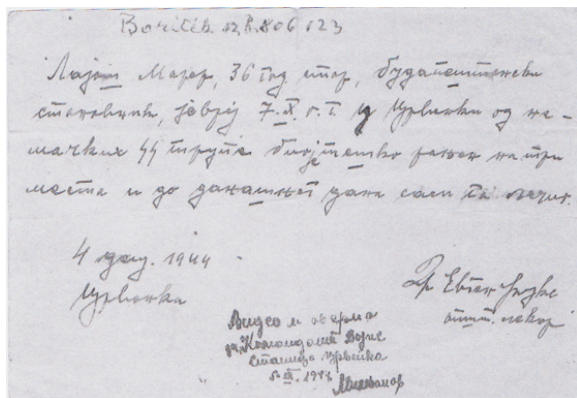 Boriték.
Лајош Мајер, 36 год стар, будапештански
становник, 7.X. у Црвенки од не-
мачких SS трупа био је тешко рањен на три
места и до данашњег дана сам га лечио.
4 дец. 1944
Црвенка
Др Евген
општ. лекар
Видео и оверио
за Командант Војне
станице Црвенка
5.XII.1944